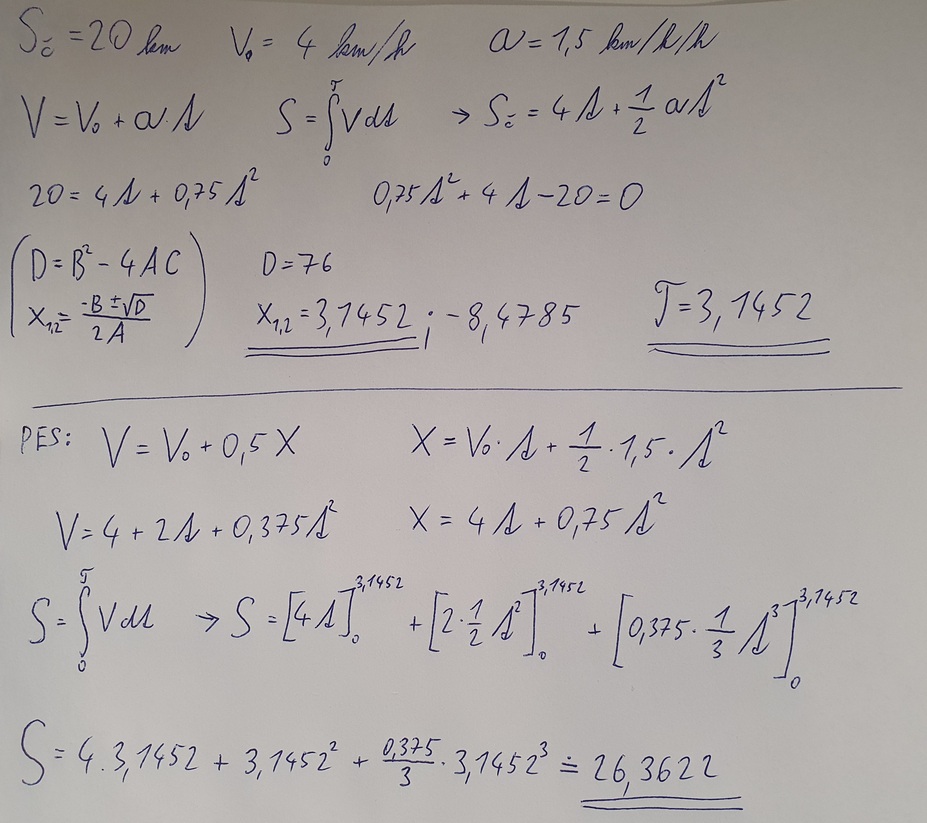 Sč = 20 km V₀ = 4 km/h a = 1,5 km/h/h
V = V₀ + a·t S = ∫₀ᵀ V dt → Sč = 4t + 1/2 at²
20 = 4t + 0,75t² 0,75t² + 4t - 20 = 0
(D = B² - 4AC D = 76
X₁,₂ = (-B ± √D)/2A) X₁,₂ = 3,1452 ; -8,4785 T = 3,1452
PES: V = V₀ + 0,5X X = V₀·t + 1/2 · 1,5 · t²
V = 4 + 2t + 0,375t² X = 4t + 0,75t²
S = ∫₀ᵀ V dt → S = [4t]₀^3,1452 + [2·1/2 t²]₀^3,1452 + [0,375 · 1/3 t³]₀^3,1452
S = 4.3,1452 + 3,1452² + 0,375/3 · 3,1452³ ≐ 26,3622